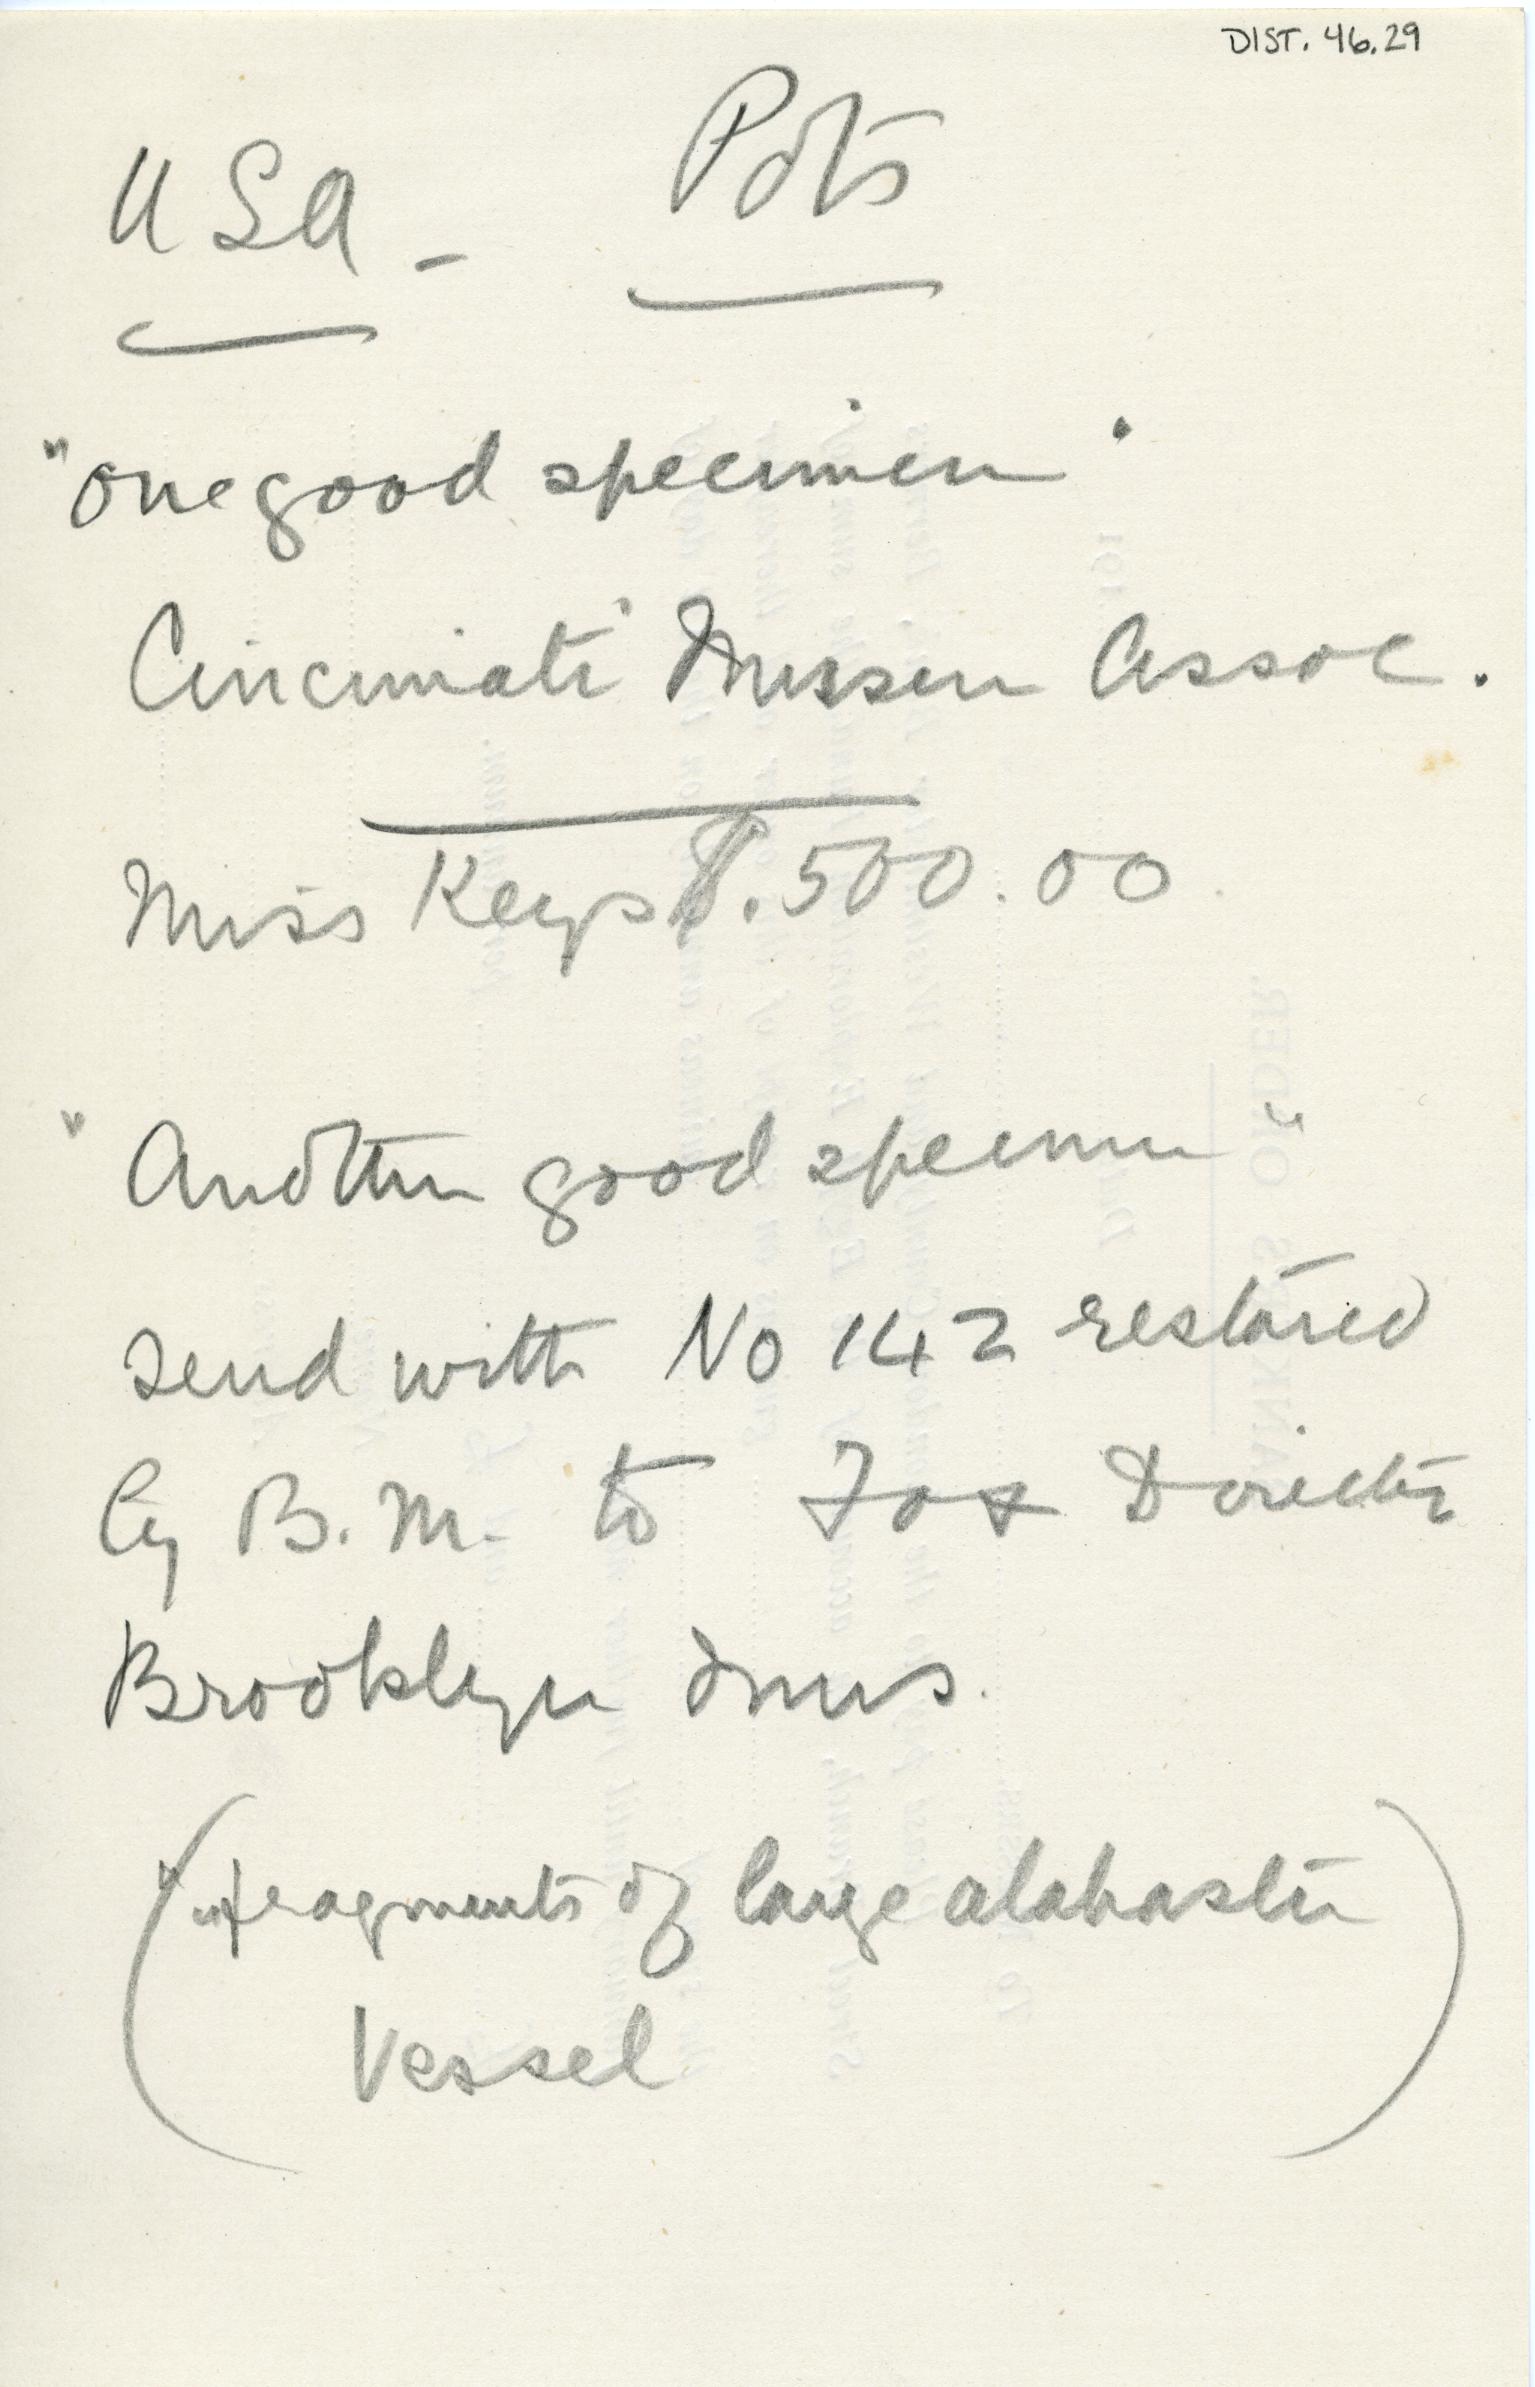 DIST. 46.29
USA - Pots
"One good specimen"
Cincinnati Museum Assoc.
Miss Keys $.500.00
"Another good specimen"
send with No 142 restored
by B.M. to Fox Director
Brooklyn Mus.
("fragments of large alabaster
Vessel)
BANKER'S ORDER.